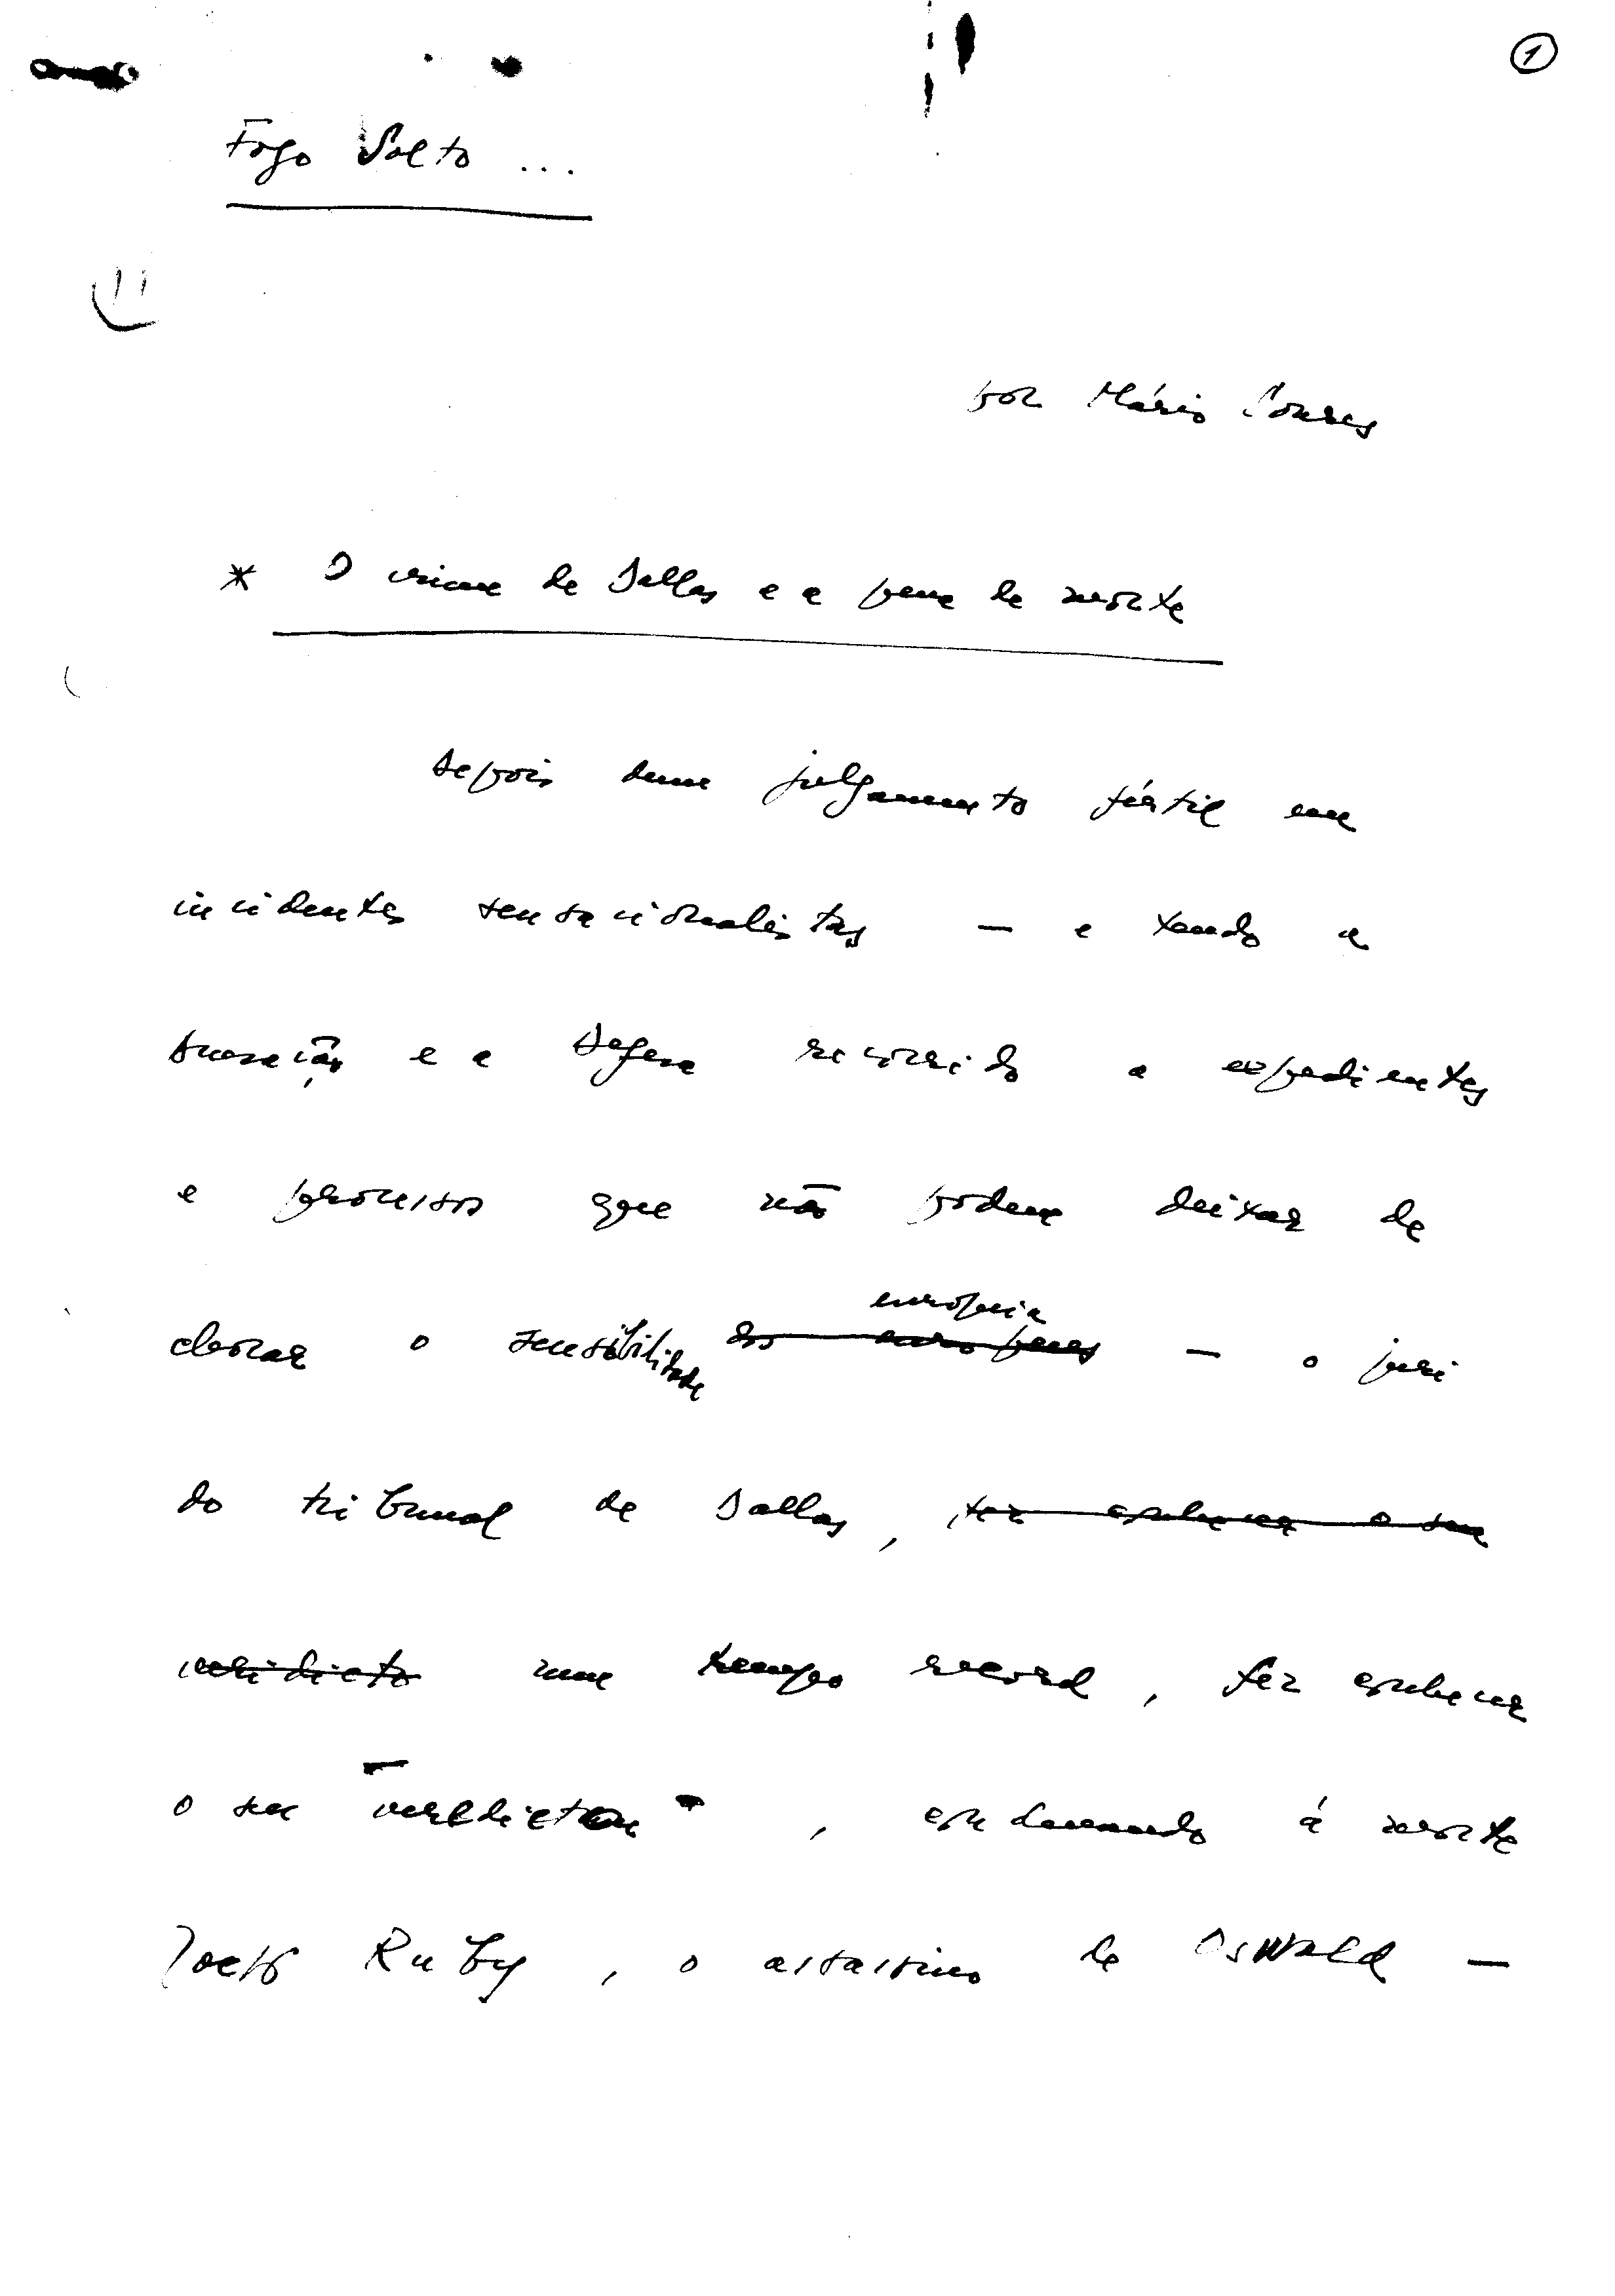 1
Fogo Solto ...
por Mário Soares
* O crime de Dallas e a pena de morte
Depois dum julgamento fértil em
incidentes sensacionalistas — e tendo a
acusação e a defesa recorrido a expedientes
e processos que não podem deixar de
europeia
chocar a sensibilidade dos europeus — o juri
do tribunal de Dallas, fez conhecer o seu
veridicto num tempo record, fez conhecer
o seu "verdictum", condenando á morte
Jack Ruby, o assassino de Oswald —